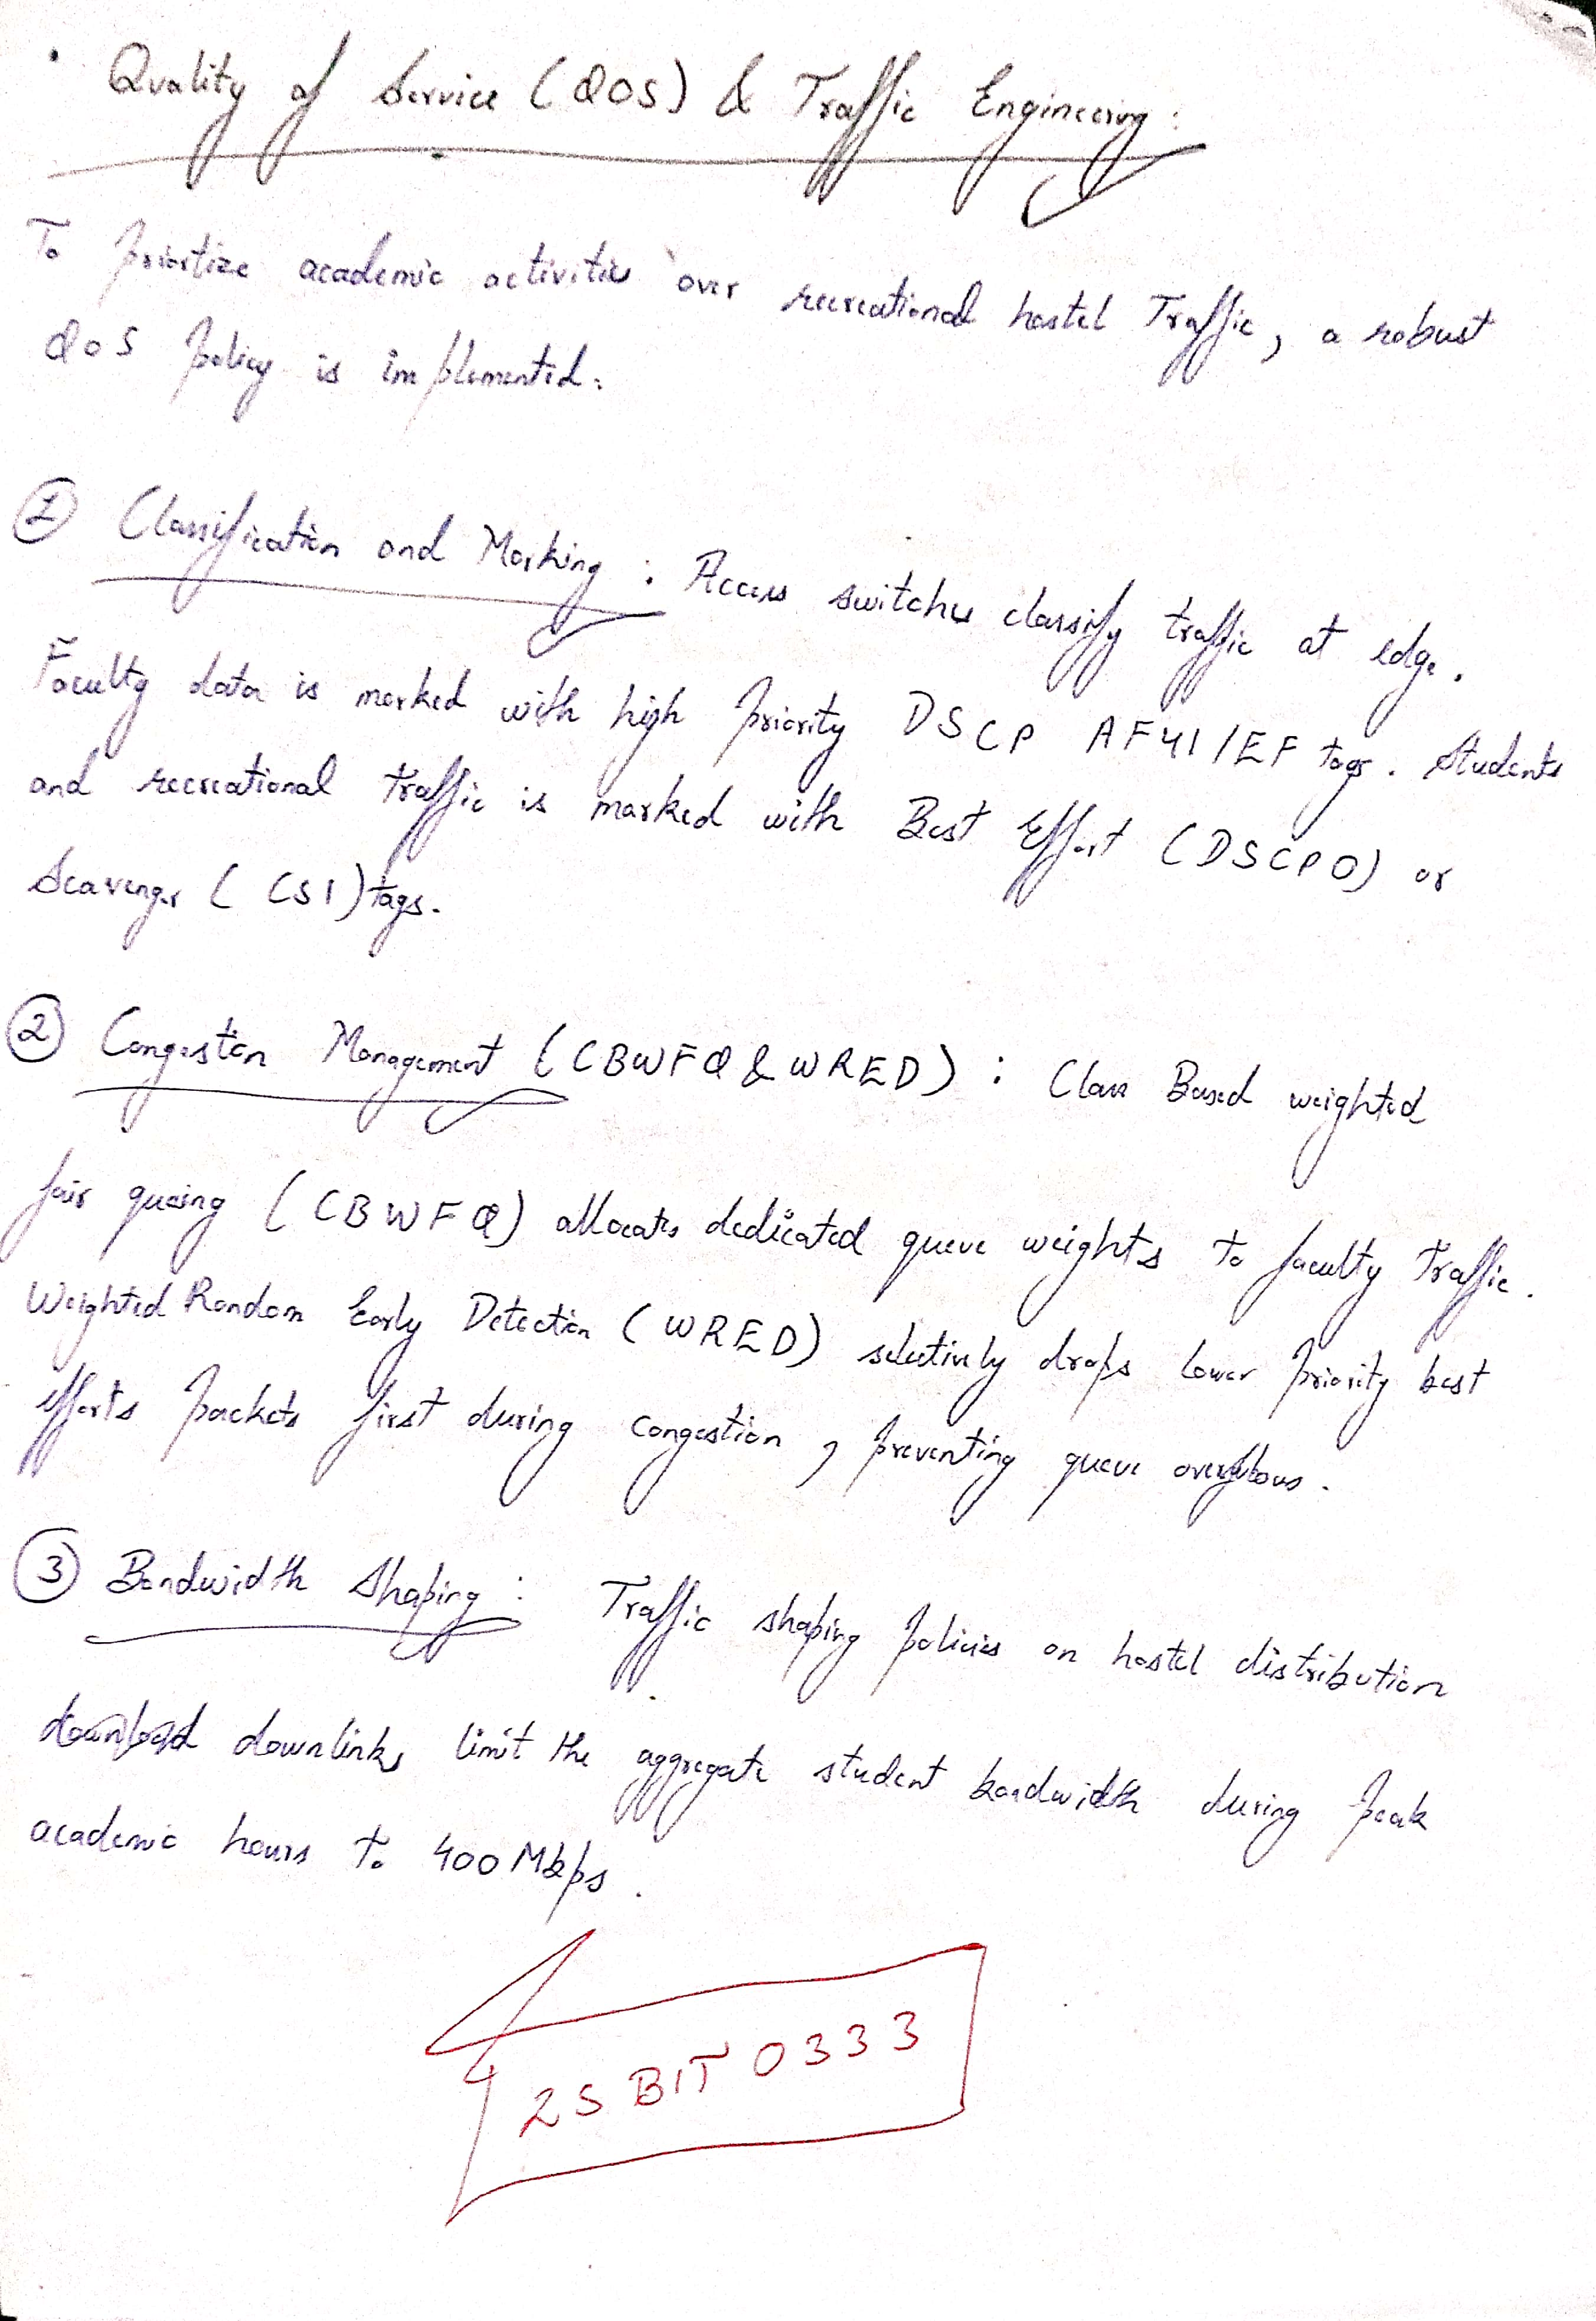 • Quality of Service (QOS) & Traffic Engineering:
To priortize academic activities over recreational hostel Traffic, a robust
QoS policy is implemented:
① Classification and Marking : Access switches classify traffic at edge.
Faculty data is marked with high priority DSCP AF41/EF tags. Students
and recreational traffic is marked with Best Effort (DSCP0) or
Scavenger (CS1) tags.
② Congestion Management (CBWFQ & WRED) : Class Based weighted
fair queing (CBWFQ) allocates dedicated queue weights to faculty Traffic.
Weighted Random Early Detection (WRED) selectively drops lower priority best
efforts packets first during congestion, preventing queue overflows.
③ Bandwidth Shaping : Traffic shaping policies on hostel distribution
downlinks limit the aggregate student bandwidth during peak
academic hours to 400 Mbps.
25BIT0333